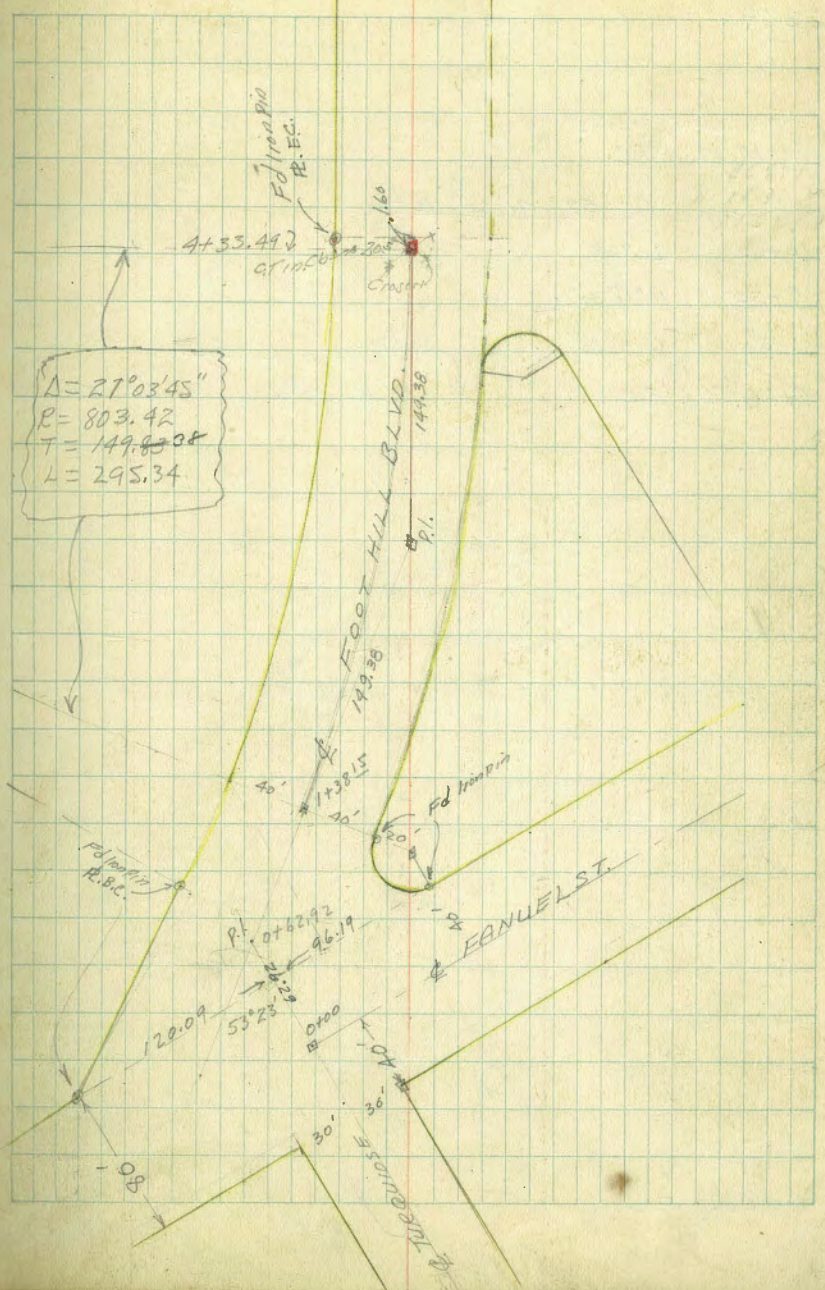 Fd Iron Pin
PL. E.C.
4+33.49
1.60
Δ= 27°03'45"
R= 803.42
T= 149.83 38
L= 295.34
FOOT HILL BLVD.
149.38
P.I.
149.38
40'
1+38.15
40'
20'
Fd Iron Pin
Fd Iron Pin
PL. B.C.
P.I. 0+62.92
96.19
26.29
53°23'
120.09
0+00
40'
℄ FANUEL ST.
40'
30'
30'
80'
℄ TURQUOISE